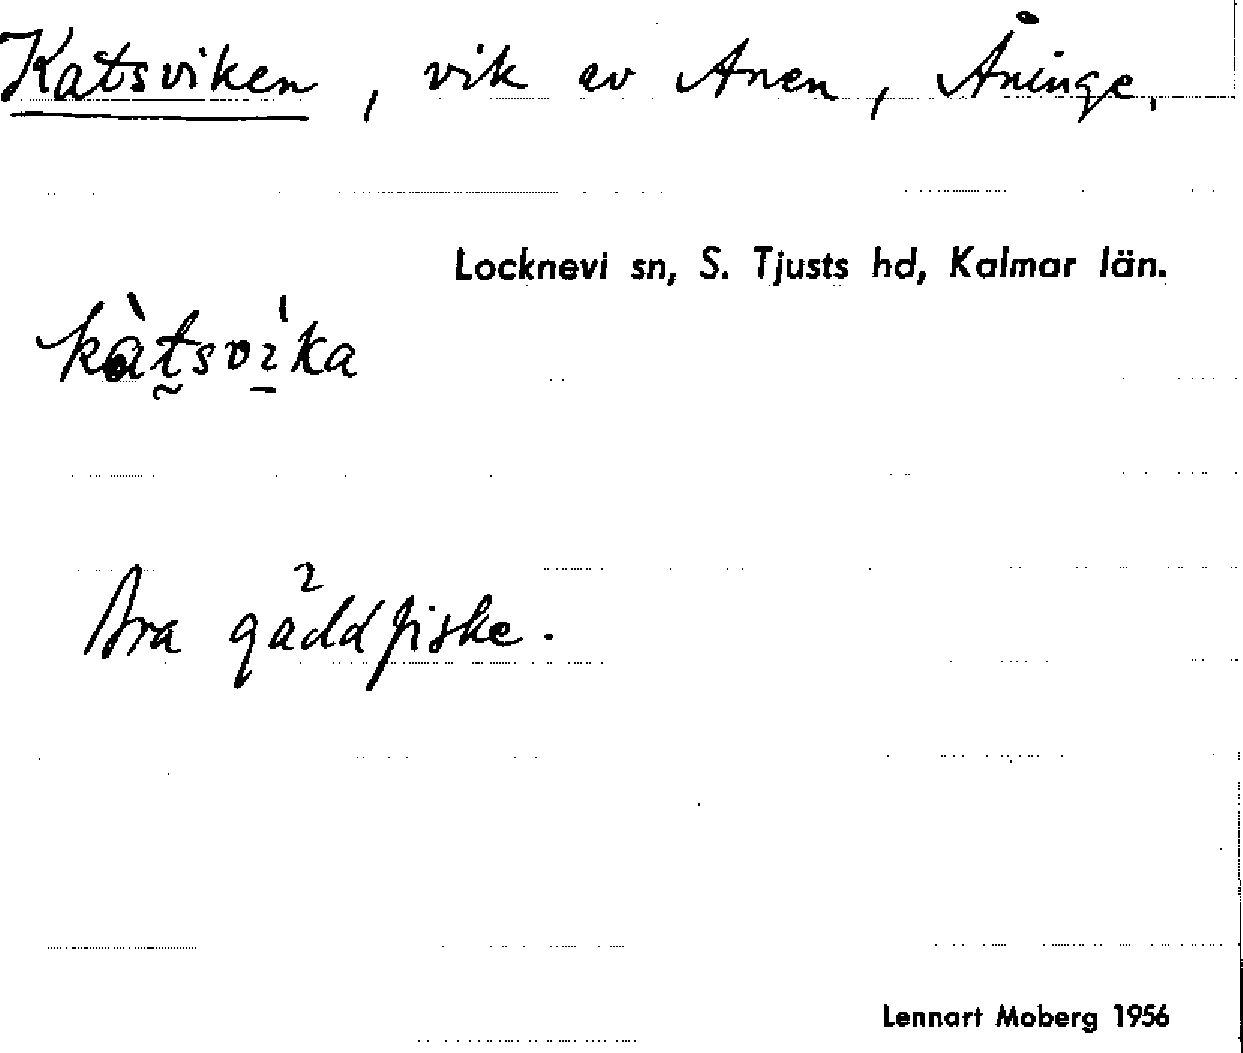 Katsviken, vik av Anen, Åninge.
Locknevi sn, S. Tjusts hd, Kalmar län.
kàt̰svi̱̍ka
Bra gäddfiske.
Lennart Moberg 1956